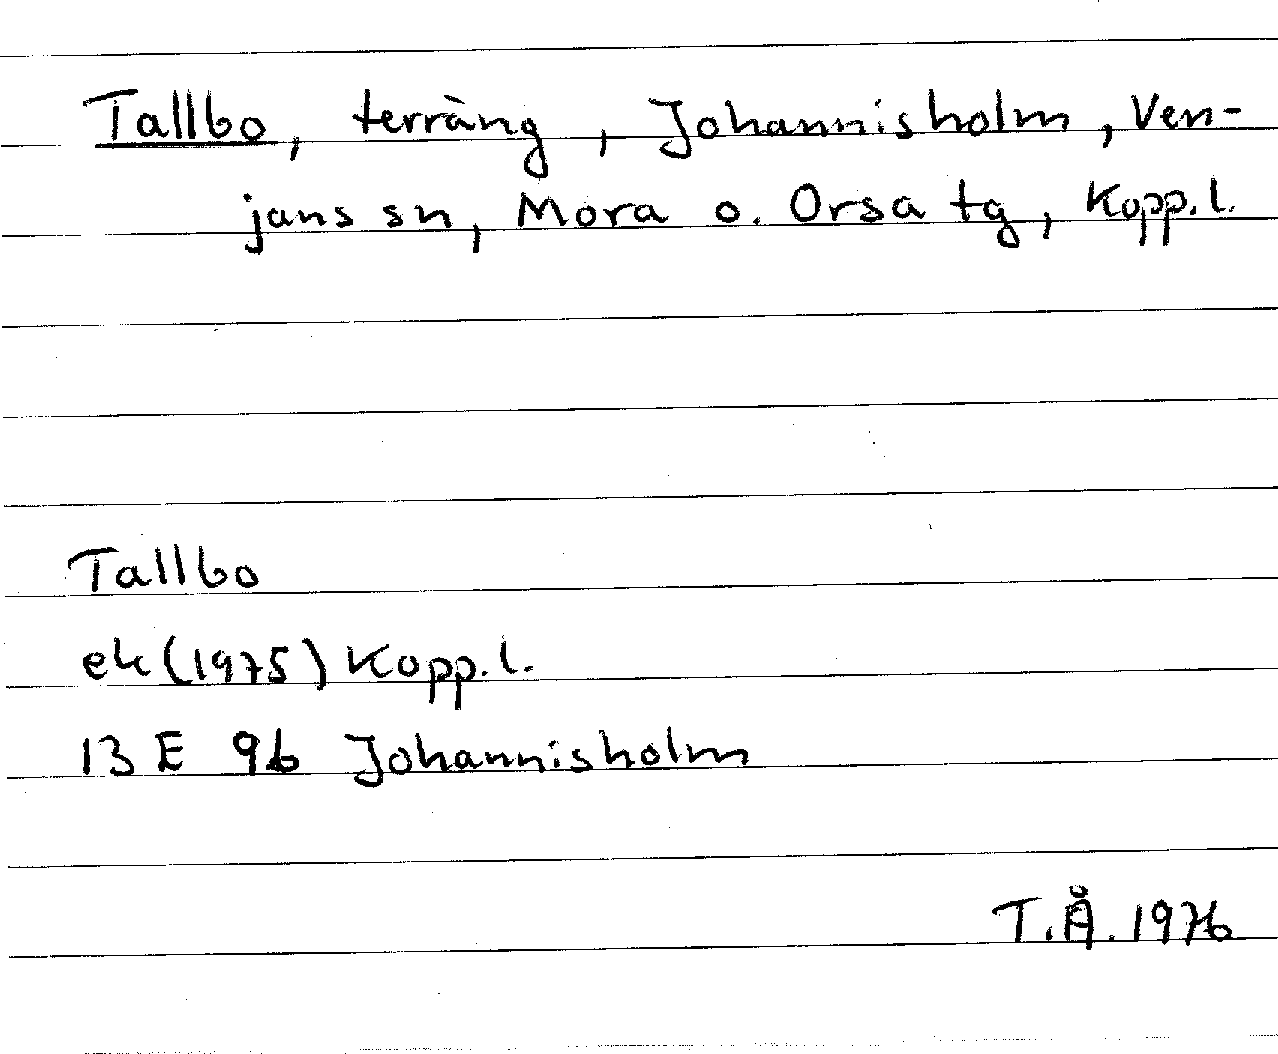 Tallbo, terräng, Johannisholm, Ven-
jans sn, Mora o. Orsa tg, Kopp.l.
Tallbo
ek (1975) Kopp.l.
13 E 9b Johannisholm
T.Å. 1976